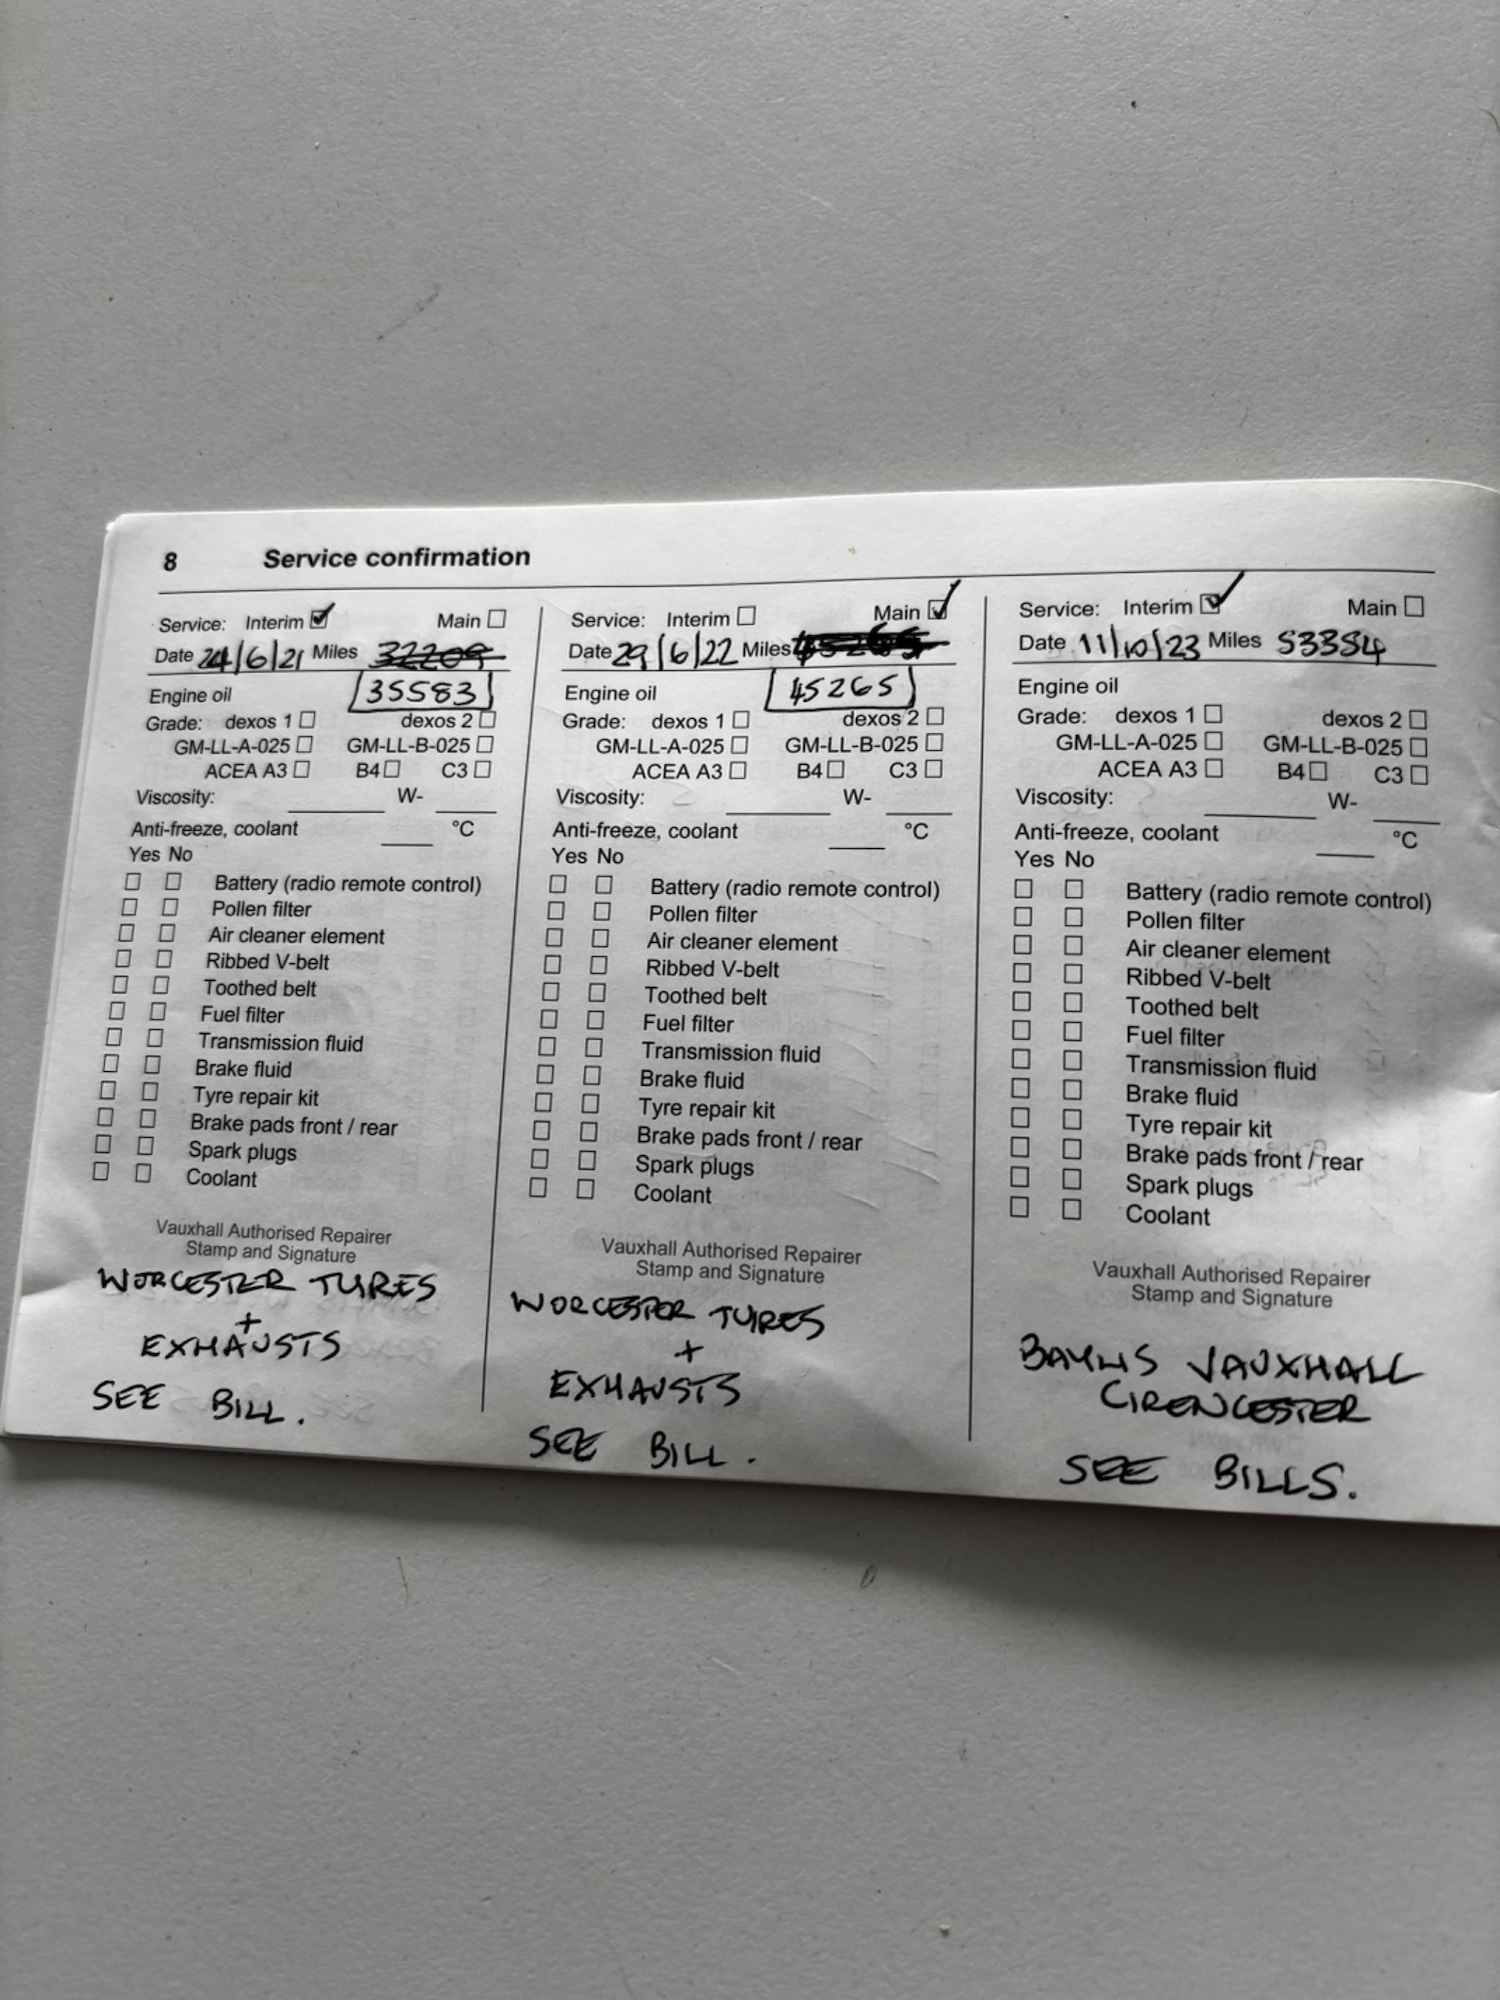 8 Service confirmation
Service: Interim Main
Date 24/6/21 Miles 32209
Engine oil 35583
Grade: dexos 1 dexos 2
GM-LL-A-025 GM-LL-B-025
ACEA A3 B4 C3
Viscosity: W-
Anti-freeze, coolant °C
Yes No
Battery (radio remote control)
Pollen filter
Air cleaner element
Ribbed V-belt
Toothed belt
Fuel filter
Transmission fluid
Brake fluid
Tyre repair kit
Brake pads front / rear
Spark plugs
Coolant
Vauxhall Authorised Repairer
Stamp and Signature
WORCESTER TYRES
+
EXHAUSTS
SEE BILL.
Service: Interim Main
Date 29/6/22 Miles
Engine oil 45265
Grade: dexos 1 dexos 2
GM-LL-A-025 GM-LL-B-025
ACEA A3 B4 C3
Viscosity: W-
Anti-freeze, coolant °C
Yes No
Battery (radio remote control)
Pollen filter
Air cleaner element
Ribbed V-belt
Toothed belt
Fuel filter
Transmission fluid
Brake fluid
Tyre repair kit
Brake pads front / rear
Spark plugs
Coolant
Vauxhall Authorised Repairer
Stamp and Signature
WORCESTER TYRES
+
EXHAUSTS
SEE BILL.
Service: Interim Main
Date 11/10/23 Miles 53354
Engine oil
Grade: dexos 1 dexos 2
GM-LL-A-025 GM-LL-B-025
ACEA A3 B4 C3
Viscosity: W-
Anti-freeze, coolant °C
Yes No
Battery (radio remote control)
Pollen filter
Air cleaner element
Ribbed V-belt
Toothed belt
Fuel filter
Transmission fluid
Brake fluid
Tyre repair kit
Brake pads front / rear
Spark plugs
Coolant
Vauxhall Authorised Repairer
Stamp and Signature
BAYLIS VAUXHALL
CIRENCESTER
SEE BILLS.